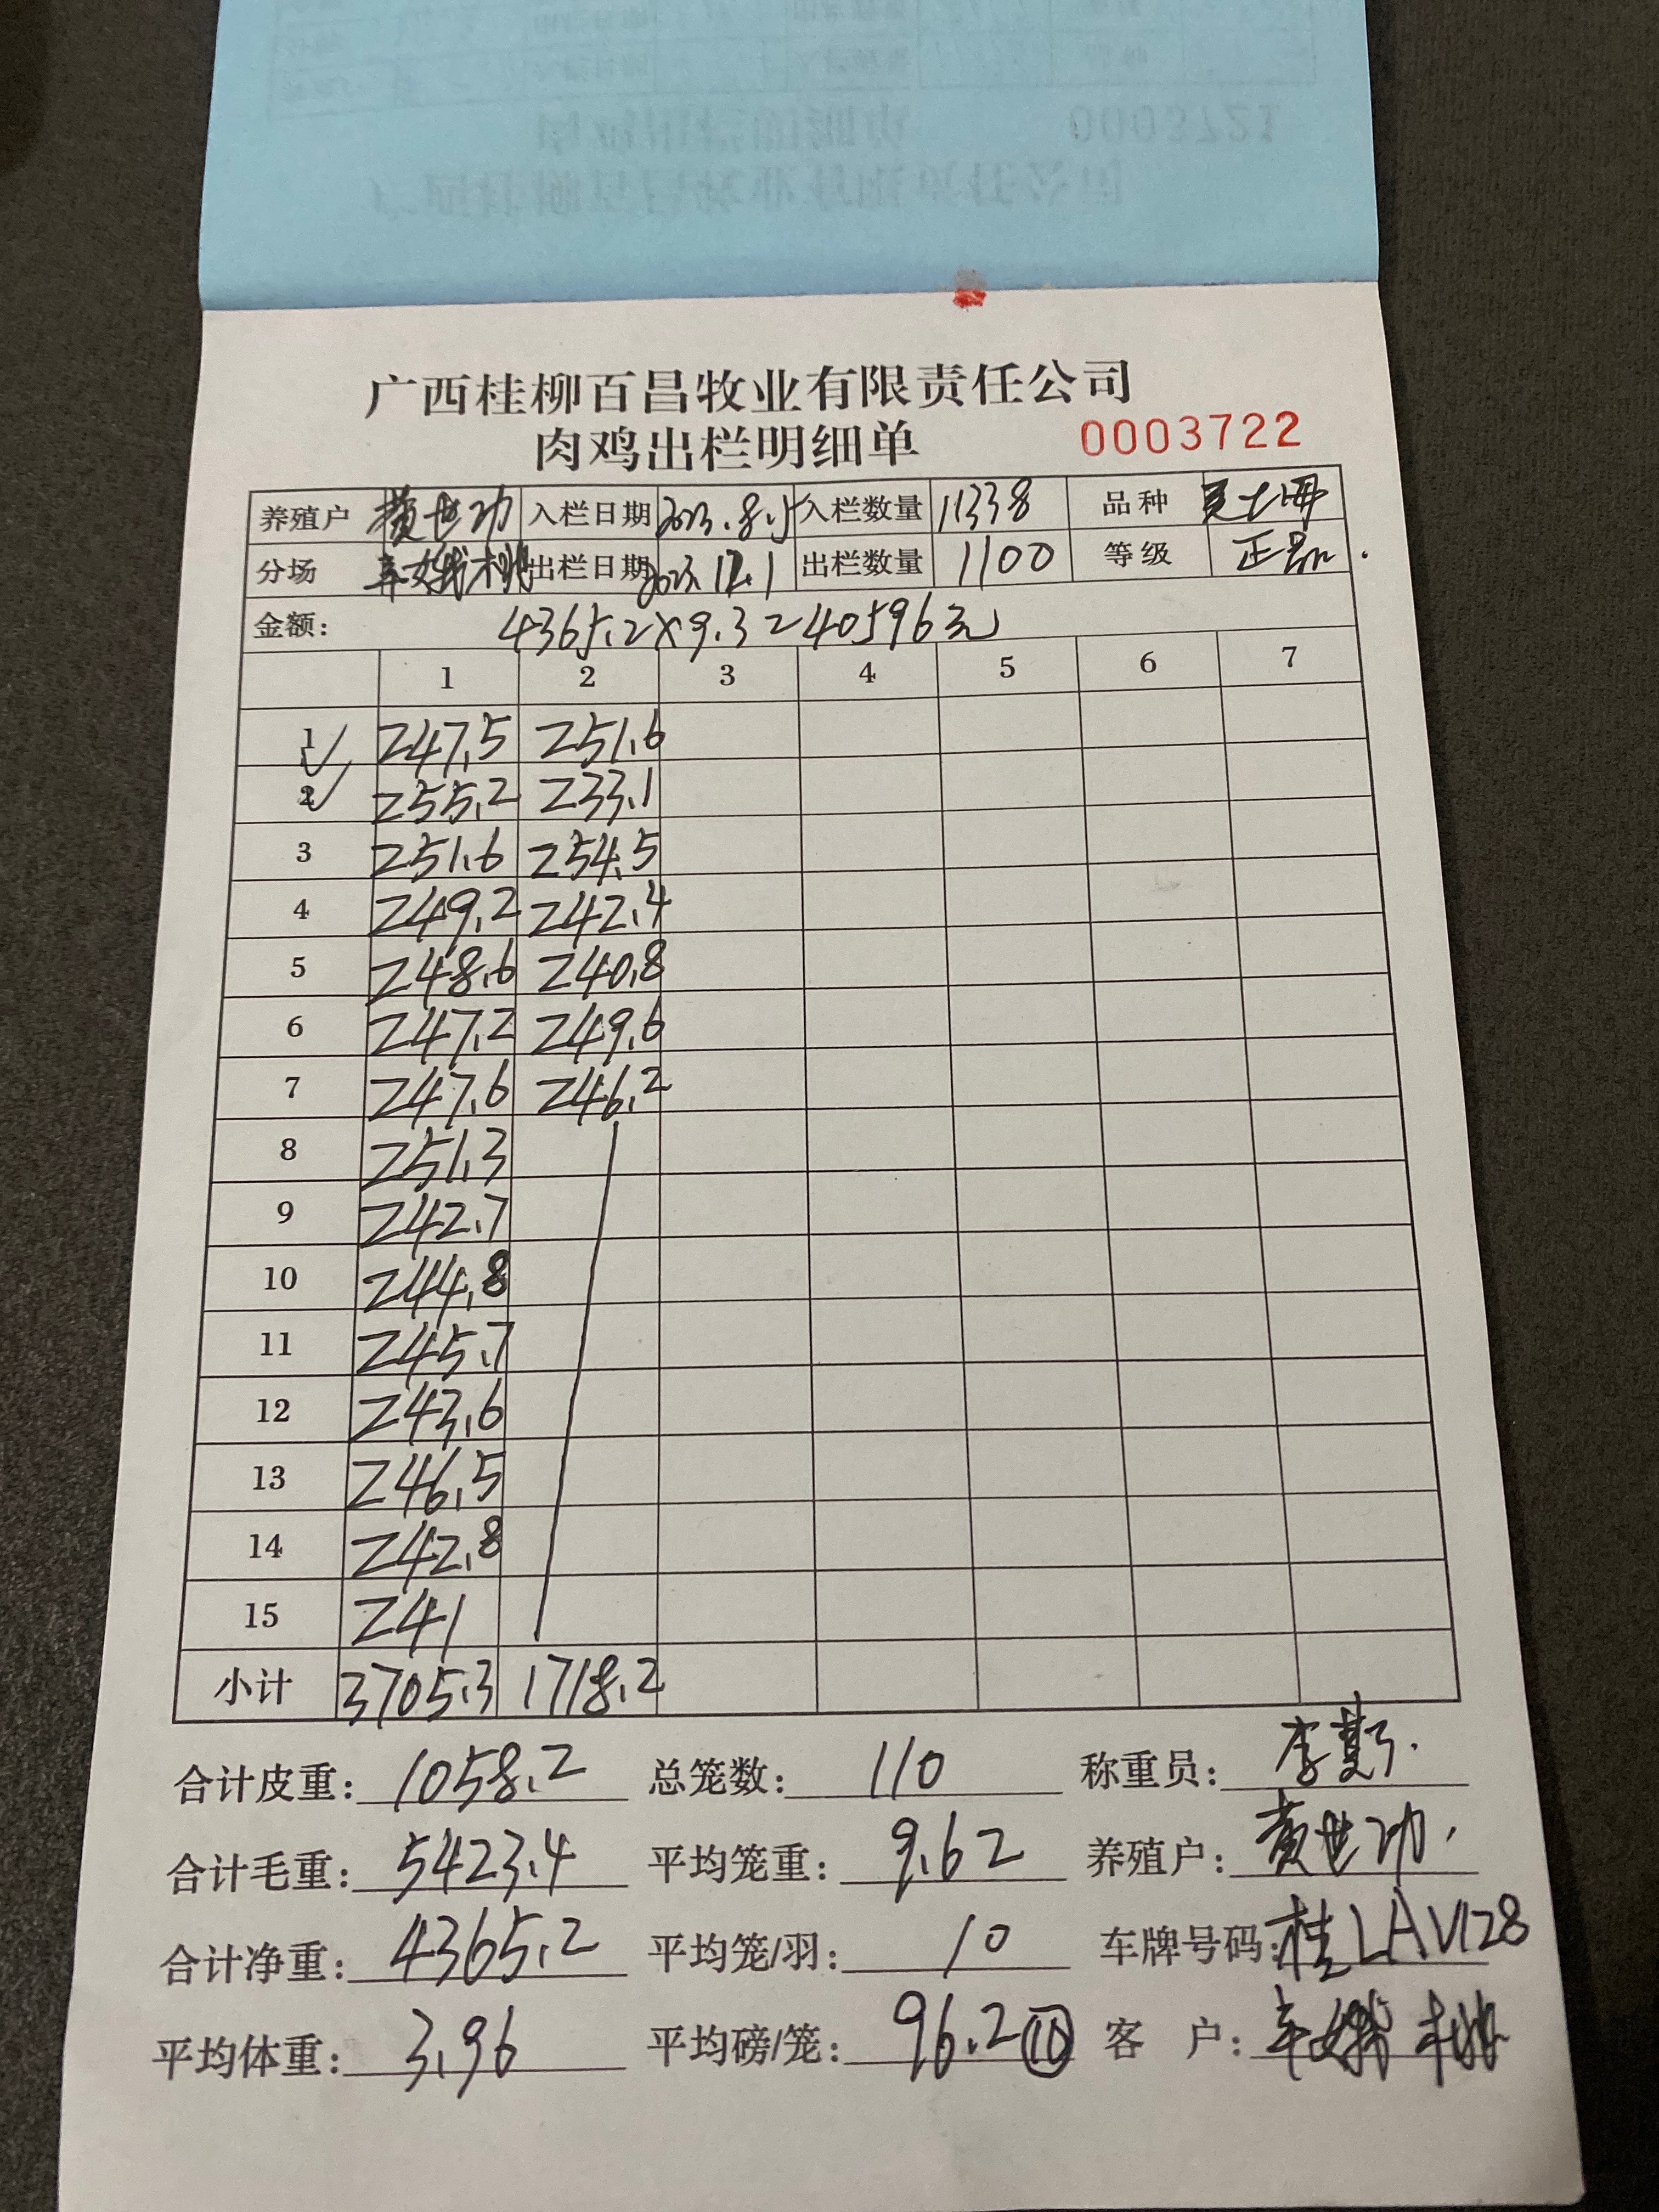 0003721
广西桂柳百昌牧业有限责任公司
肉鸡出栏明细单 0003722
养殖户 黄世功 入栏日期 2023.8.5 入栏数量 11338 品种
分场 出栏日期 2023.12.1 出栏数量 1100 等级 正品.
金额: 4365.2×9.3=40596元
1 2 3 4 5 6 7
1 247.5 251.6
2 255.2 233.1
3 251.6 254.5
4 249.2 242.4
5 248.6 240.8
6 247.2 249.6
7 247.6 246.2
8 251.3
9 242.7
10 244.8
11 245.7
12 243.6
13 246.5
14 242.8
15 241
小计 3705.3 1718.2
合计皮重: 1058.2 总笼数: 110 称重员: 李
合计毛重: 5423.4 平均笼重: 9.62 养殖户: 黄世功.
合计净重: 4365.2 平均笼/羽: 10 车牌号码: 桂LAV128
平均体重: 3.96 平均磅/笼: 96.2⑩ 客 户: